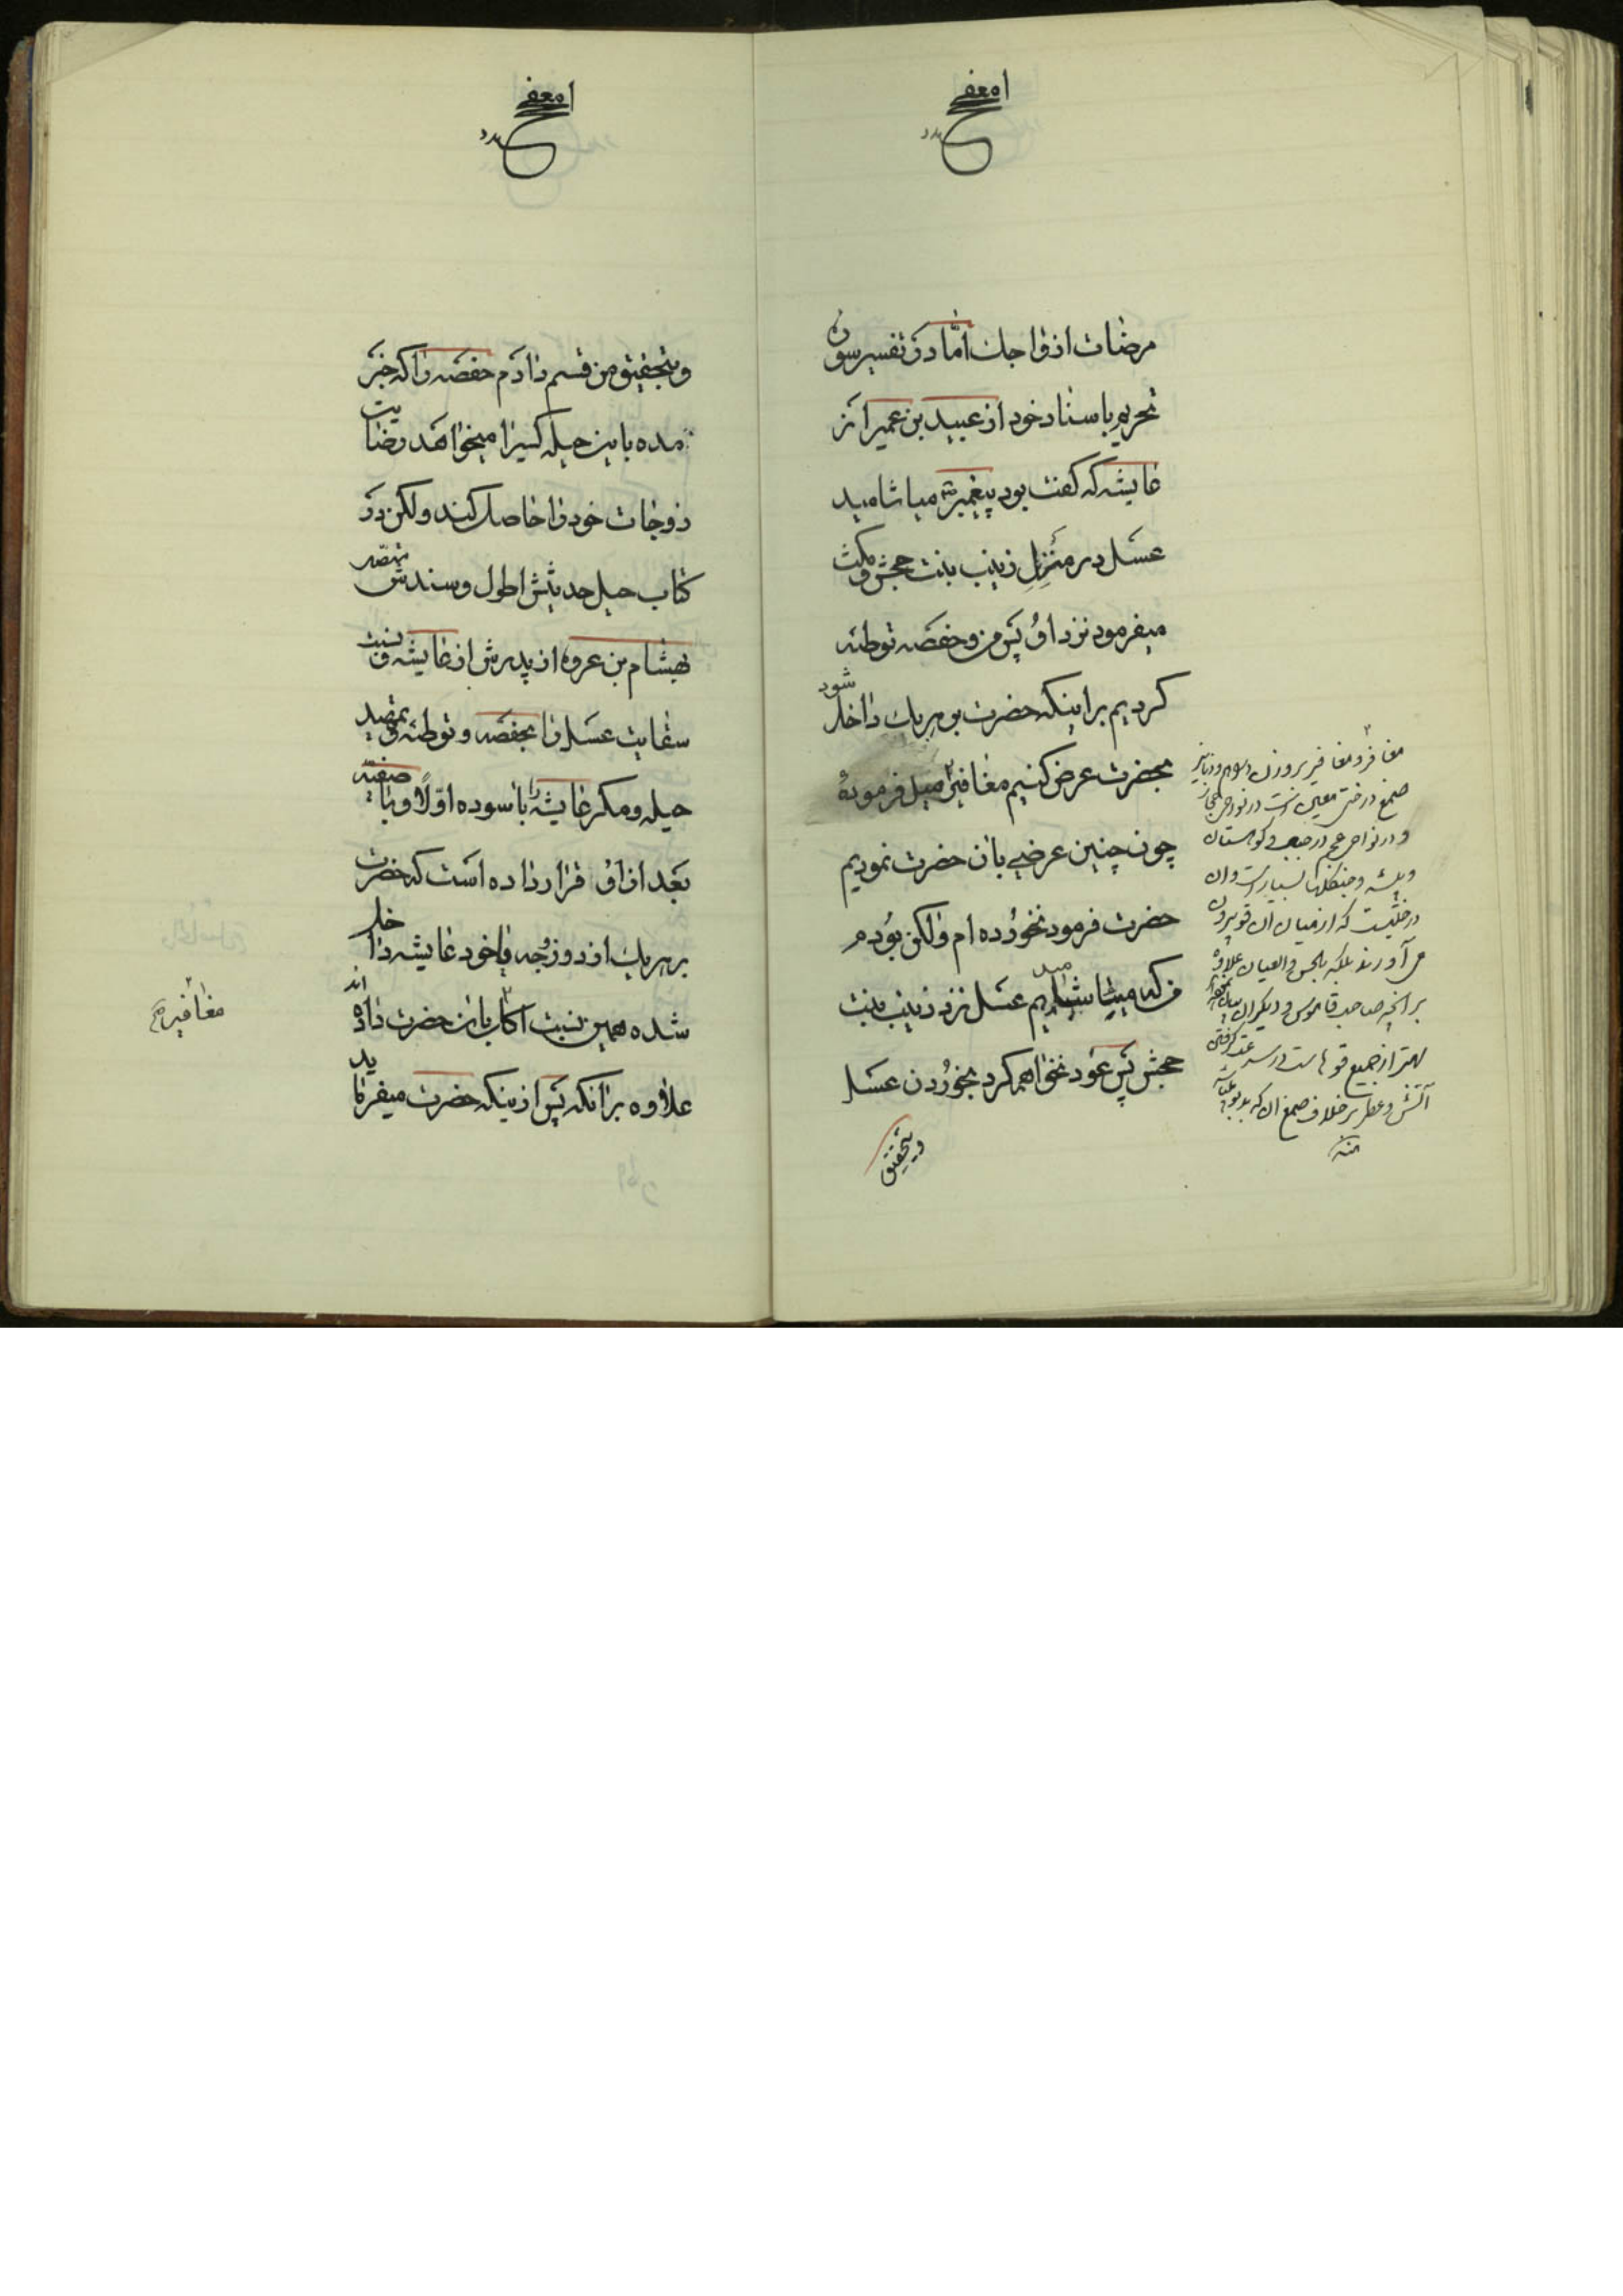 مرضات ازواجك امّا در تفسیر سوره
تحریم باسناد خود از عبید بن عمیر از
عایشه که گفت بود پیغمبر میاشامید
عسل در منزل زینب بنت جحش و مکث
میفرمود نزد او پس من و حفصه توطئه
کردیم بر اینکه حضرت بر هر یك داخل شود
بحضرت عرض کنیم مغافیر میل فرمودهٔ
چون چنین عرضی بان حضرت نمودیم
حضرت فرمود نخورده ام ولکن بودم
من که میاشامیدم عسل نزد زینب بنت
جحش پس عود نخواهم کرد بخوردن عسل
وبتحقیق
مغافر و مغافیر بر وزن
صمغ درختی معین است در نواحی حجاز
و در نواحی عجم در و کوهستان
و بیشه و جنگلها بسیار است و ان
درختیست که از میان ان قو بیرون
می آورند بلکه بالحس والعیان علاوه
بر انچه صاحب قاموس و دیگران
بهتر از جمیع قوهاست در سرعت گرفتن
آتش و عطر بر خلاف صمغ ان که بدبو
منه
وبتحقیق من قسم دادم حفصه را که خبر
مده باین حیله کسیرا میخواهد رضایت
زوجات خود را حاصل کند ولکن در
کتاب حیل حدیثش اطول و سندش
بهشام بن عروه از پدرش از عایشه و نسبت
سقایت عسل را بحفصه و توطئه و تمهید
حیله و مکر عایشه را با سوده اوّلاً و با صفیّه
بعد از او قرار داده است که حضرت
بر هر یك از دو زوجه و با خود عایشه داخل
شده همین نسبت اکل بان حضرت داده اند
علاوه بر انکه پس از اینکه حضرت میفرماید
مغافیر